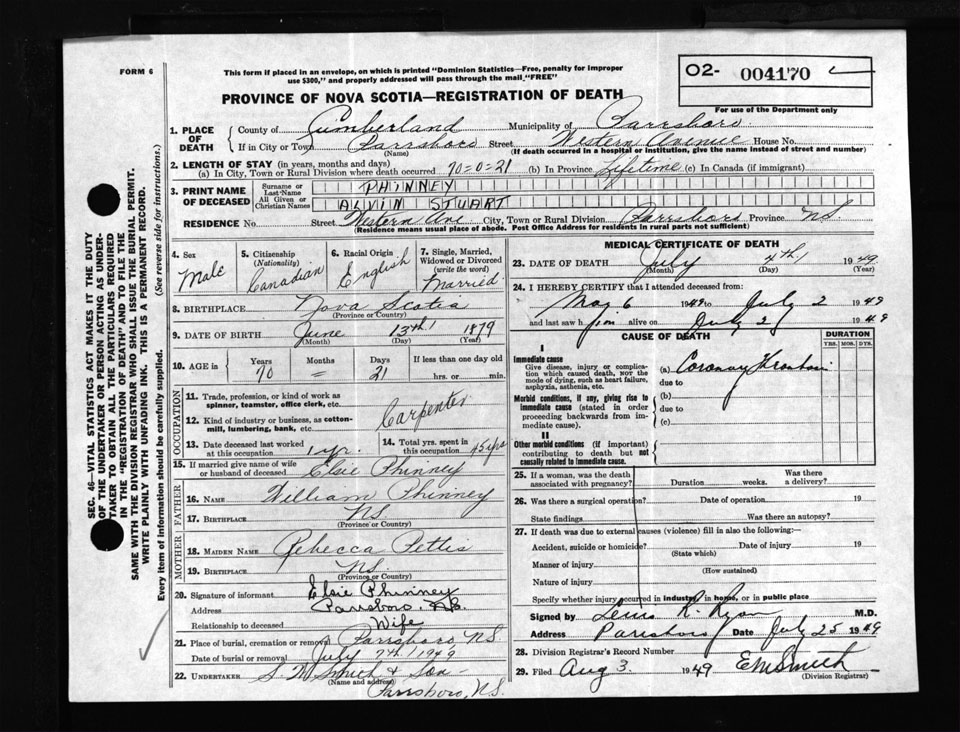 FORM 6
This form if placed in an envelope, on which is printed "Dominion Statistics—Free, penalty for improper
use $300," and properly addressed will pass through the mail "FREE"
O2- 004170
For use of the Department only
PROVINCE OF NOVA SCOTIA—REGISTRATION OF DEATH
1. PLACE OF DEATH
County of Cumberland Municipality of Parrsboro
If in City or Town Parrsboro Street Western Avenue House No.
(Name) (If death occurred in a hospital or institution, give the name instead of street and number)
2. LENGTH OF STAY (in years, months and days)
(a) In City, Town or Rural Division where death occurred 70=0=21 (b) In Province Lifetime (c) In Canada (if immigrant)
3. PRINT NAME OF DECEASED
Surname or Last Name PHINNEY
All Given or Christian Names ALVIN STUART
RESIDENCE No. Street Western Ave City, Town or Rural Division Parrsboro Province NS
(Residence means usual place of abode. Post Office Address for residents in rural parts not sufficient)
4. Sex Male
5. Citizenship (Nationality) Canadian
6. Racial Origin English
7. Single, Married, Widowed or Divorced (write the word) Married
8. BIRTHPLACE Nova Scotia
(Province or Country)
9. DATE OF BIRTH June 13th 1879
(Month) (Day) (Year)
10. AGE in Years Months Days If less than one day old
70 = 21 hrs. or min.
OCCUPATION
11. Trade, profession, or kind of work as
spinner, teamster, office clerk, etc.
Carpenter
12. Kind of industry or business, as cotton-
mill, lumbering, bank, etc.
13. Date deceased last worked at this occupation 1 yr.
14. Total yrs. spent in this occupation 45 yrs
15. If married give name of wife or husband of deceased Elsie Phinney
FATHER
16. NAME William Phinney
17. BIRTHPLACE NS
(Province or Country)
MOTHER
18. MAIDEN NAME Rebecca Pettis
19. BIRTHPLACE NS
(Province or Country)
20. Signature of informant Elsie Phinney
Address Parrsboro. N.S.
Relationship to deceased Wife
21. Place of burial, cremation or removal Parrsboro, NS
Date of burial or removal July 7th 1949
22. UNDERTAKER S. W Smith & Son
(Name and address)
Parrsboro, N.S.
MEDICAL CERTIFICATE OF DEATH
23. DATE OF DEATH July 4th 1949
(Month) (Day) (Year)
24. I HEREBY CERTIFY that I attended deceased from:
May 6 1949 to July 2 1949
and last saw him alive on July 2 1949
CAUSE OF DEATH
DURATION
YRS. MOS. DYS.
I
Immediate cause
Give disease, injury or complica-
tion which caused death, NOT the
mode of dying, such as heart failure,
asphyxia, asthenia, etc.
(a) Coronary
due to
Morbid conditions, if any, giving rise to
immediate cause (stated in order
proceeding backwards from im-
mediate cause).
(b)
due to
(c)
II
Other morbid conditions (if important)
contributing to death but not
causally related to immediate cause.
25. If a woman, was the death
associated with pregnancy? Duration weeks. Was there a delivery?
26. Was there a surgical operation? Date of operation 19
State findings Was there an autopsy?
27. If death was due to external causes (violence) fill in also the following:
Accident, suicide or homicide? Date of injury 19
(State which)
Manner of injury
(How sustained)
Nature of injury
Specify whether injury occurred in industry, in home, or in public place
Signed by R. Ryan M.D.
Address Parrsboro Date July 25 1949
28. Division Registrar's Record Number
29. Filed Aug 3 1949 E M Smith
(Division Registrar)
SEC. 46—VITAL STATISTICS ACT MAKES IT THE DUTY
OF THE UNDERTAKER OR PERSON ACTING AS UNDER-
TAKER TO OBTAIN ALL THE PARTICULARS REQUIRED
IN THE "REGISTRATION OF DEATH" AND TO FILE THE
SAME WITH THE DIVISION REGISTRAR WHO SHALL ISSUE THE BURIAL PERMIT.
WRITE PLAINLY WITH UNFADING INK. THIS IS A PERMANENT RECORD.
Every item of information should be carefully supplied. (See reverse side for instructions.)